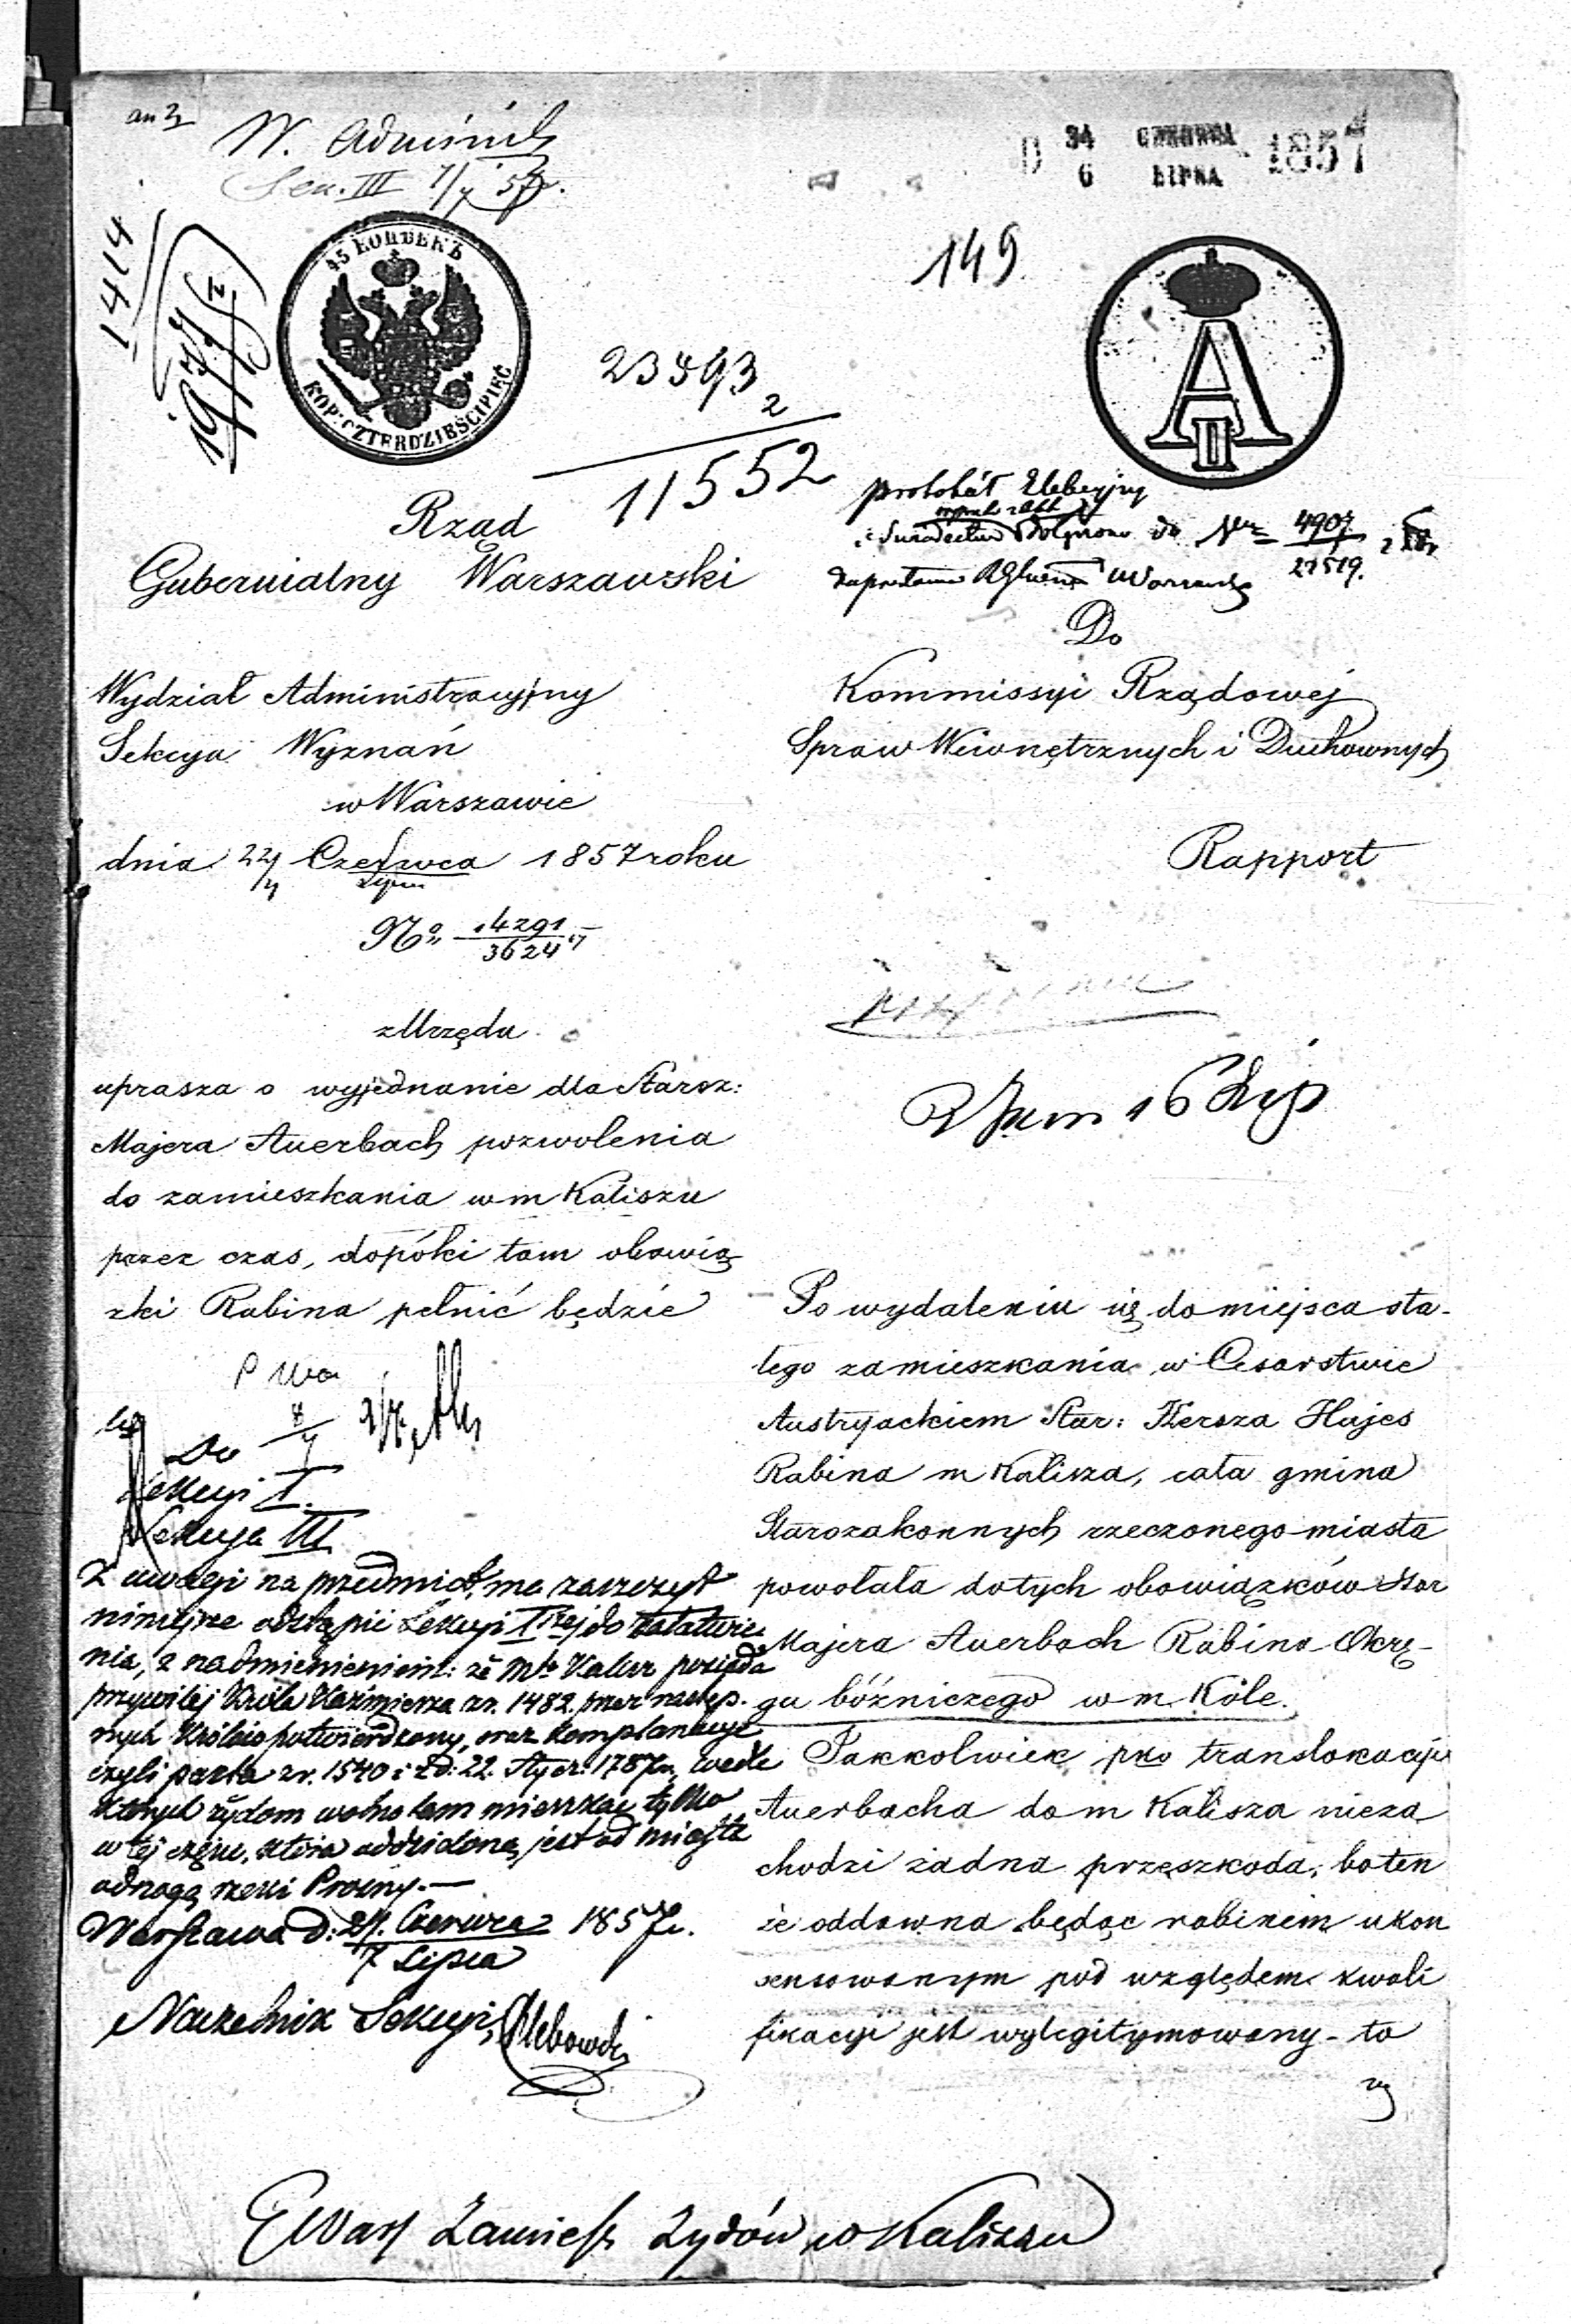 W. Administr
Sek. III
D 24 CZERWCA 1857
6 LIPCA
1414
149
45 КОПѢЕКЪ
KOP: CZTERDZIEŚCI PIĘĆ
A II
23893
2
11552
protokół Elekcyjny
do Nru 4907
21519.
Rząd
Gubernialny Warszawski
Do
Wydział Administracyjny
Sekcya Wyznań
w Warszawie
dnia 22/4 Czerwca 1857 roku
Lipca
No. 14291
3624
Kommissyi Rządowej
Spraw Wewnętrznych i Duchownych
Rapport
z Urzędu
uprasza o wyjednanie dla Starsz:
Majera Auerbach pozwolenia
do zamieszkania w m Kaliszu
przez czas, dopóki tam obowią
zki Rabina pełnić będzie
16 Lip
Do
Sekcyi I.
Sekcya III
Z uwagi na przedmiot, ma zaszczyt
niniejsze odstąpić Sekcyi I szej do załatwie
nia, z nadmienieniem: że Mto Kalisz posiada
przywilej Króla Kaźmierza z r. 1482. przez następ.
nych Królów potwierdzony, oraz komplanacye
czyli pakta z r. 1540 i z d: 22. Stycz: 1787 r., wedle
których żydom wolno tam mieszkać tylko
w tej części, która oddzieloną jest od miasta
odnogą rzeki Prosny.—
Warszawa d: 25. Czerwca 1857 r.
7 Lipca
Naczelnik Sekcyi
Po wydaleniu się do miejsca sta-
łego zamieszkania w Cesarstwie
Austryackiem Star: Hersza Hajes
Rabina m Kalisza, cała gmina
Starozakonnych rzeczonego miasta
powołała do tych obowiązków Star
Majera Auerbach Rabina Okrę-
gu bóżniczego w m. Kole.
Jakkolwiek pko translokacyi
Auerbacha do m Kalisza nieza
chodzi żadna przeszkoda, bo ten
że oddawna będąc rabinem ukon
sensowanym pod względem kwali
fikacyi jest wylegitymowany – to
Zamiesz Żydów w Kaliszu